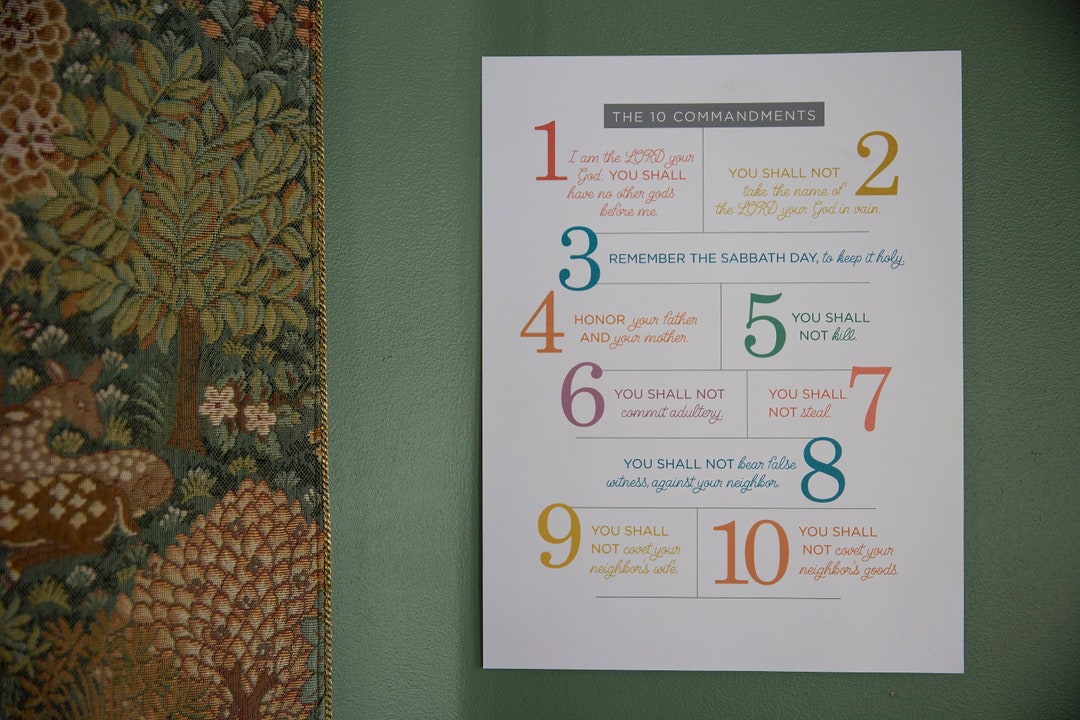 THE 10 COMMANDMENTS
1
I am the LORD your
God: YOU SHALL
have no other gods
before me.
2
YOU SHALL NOT
take the name of
the LORD your God in vain.
3
REMEMBER THE SABBATH DAY, to keep it holy.
4
HONOR your father
AND your mother.
5
YOU SHALL
NOT kill.
6
YOU SHALL NOT
commit adultery.
7
YOU SHALL
NOT steal.
8
YOU SHALL NOT bear false
witness, against your neighbor.
9
YOU SHALL
NOT covet your
neighbor's wife.
10
YOU SHALL
NOT covet your
neighbor's goods.